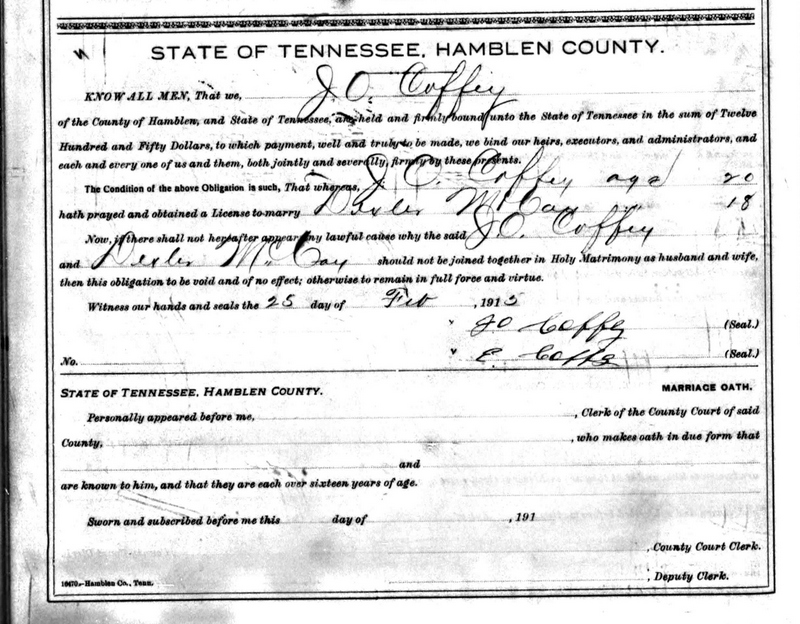 STATE OF TENNESSEE, HAMBLEN COUNTY.
KNOW ALL MEN, That we, J. O. Coffey
of the County of Hamblen, and State of Tennessee, are held and firmly bound unto the State of Tennessee in the sum of Twelve
Hundred and Fifty Dollars, to which payment, well and truly to be made, we bind our heirs, executors, and administrators, and
each and every one of us and them, both jointly and severally, firmly by these presents.
The Condition of the above Obligation is such, That whereas, J. O. Coffey age 20
hath prayed and obtained a License to marry McCoy " 18
Now, if there shall not hereafter appear any lawful cause why the said J O. Coffey
and McCoy should not be joined together in Holy Matrimony as husband and wife,
then this obligation to be void and of no effect; otherwise to remain in full force and virtue.
Witness our hands and seals the 25 day of Feb , 191
J O Coffey (Seal.)
E. (Seal.)
No.
STATE OF TENNESSEE, HAMBLEN COUNTY. MARRIAGE OATH.
Personally appeared before me, , Clerk of the County Court of said
County, , who makes oath in due form that
and
are known to him, and that they are each over sixteen years of age.
Sworn and subscribed before me this day of , 191
, County Court Clerk.
16470.-Hamblen Co., Tenn. , Deputy Clerk.